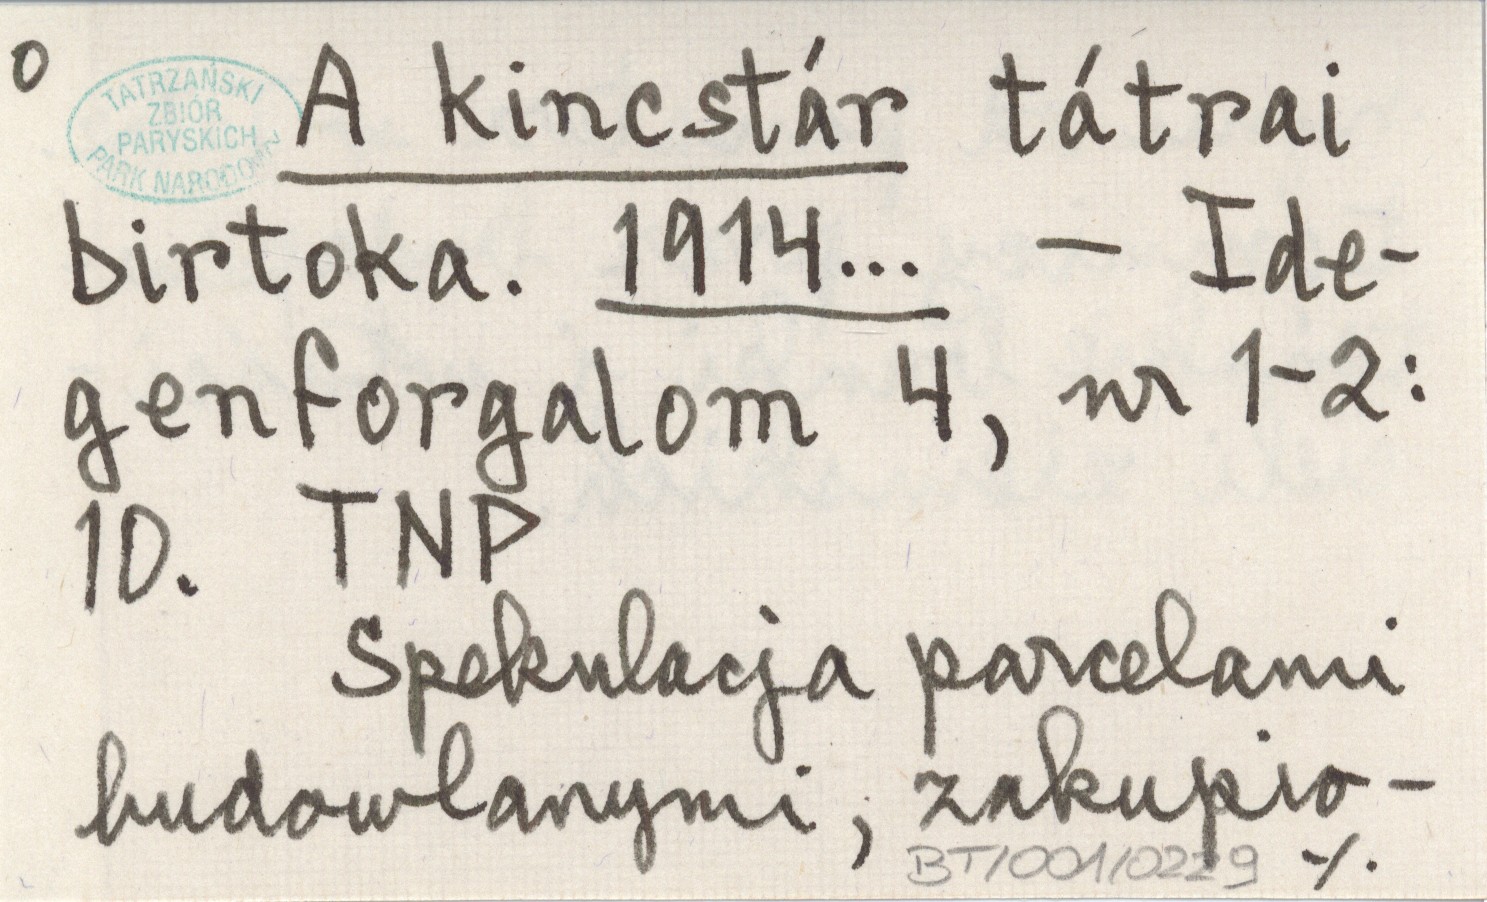 o
TATRZAŃSKI
ZBIÓR
PARYSKICH
PARK NARODOWY
A kincstár tátrai
birtoka. 1914... – Ide-
genforgalom 4, nr 1-2:
10. TNP
Spekulacja parcelami
budowlanymi, zakupio-
BT/001/0229 ./.